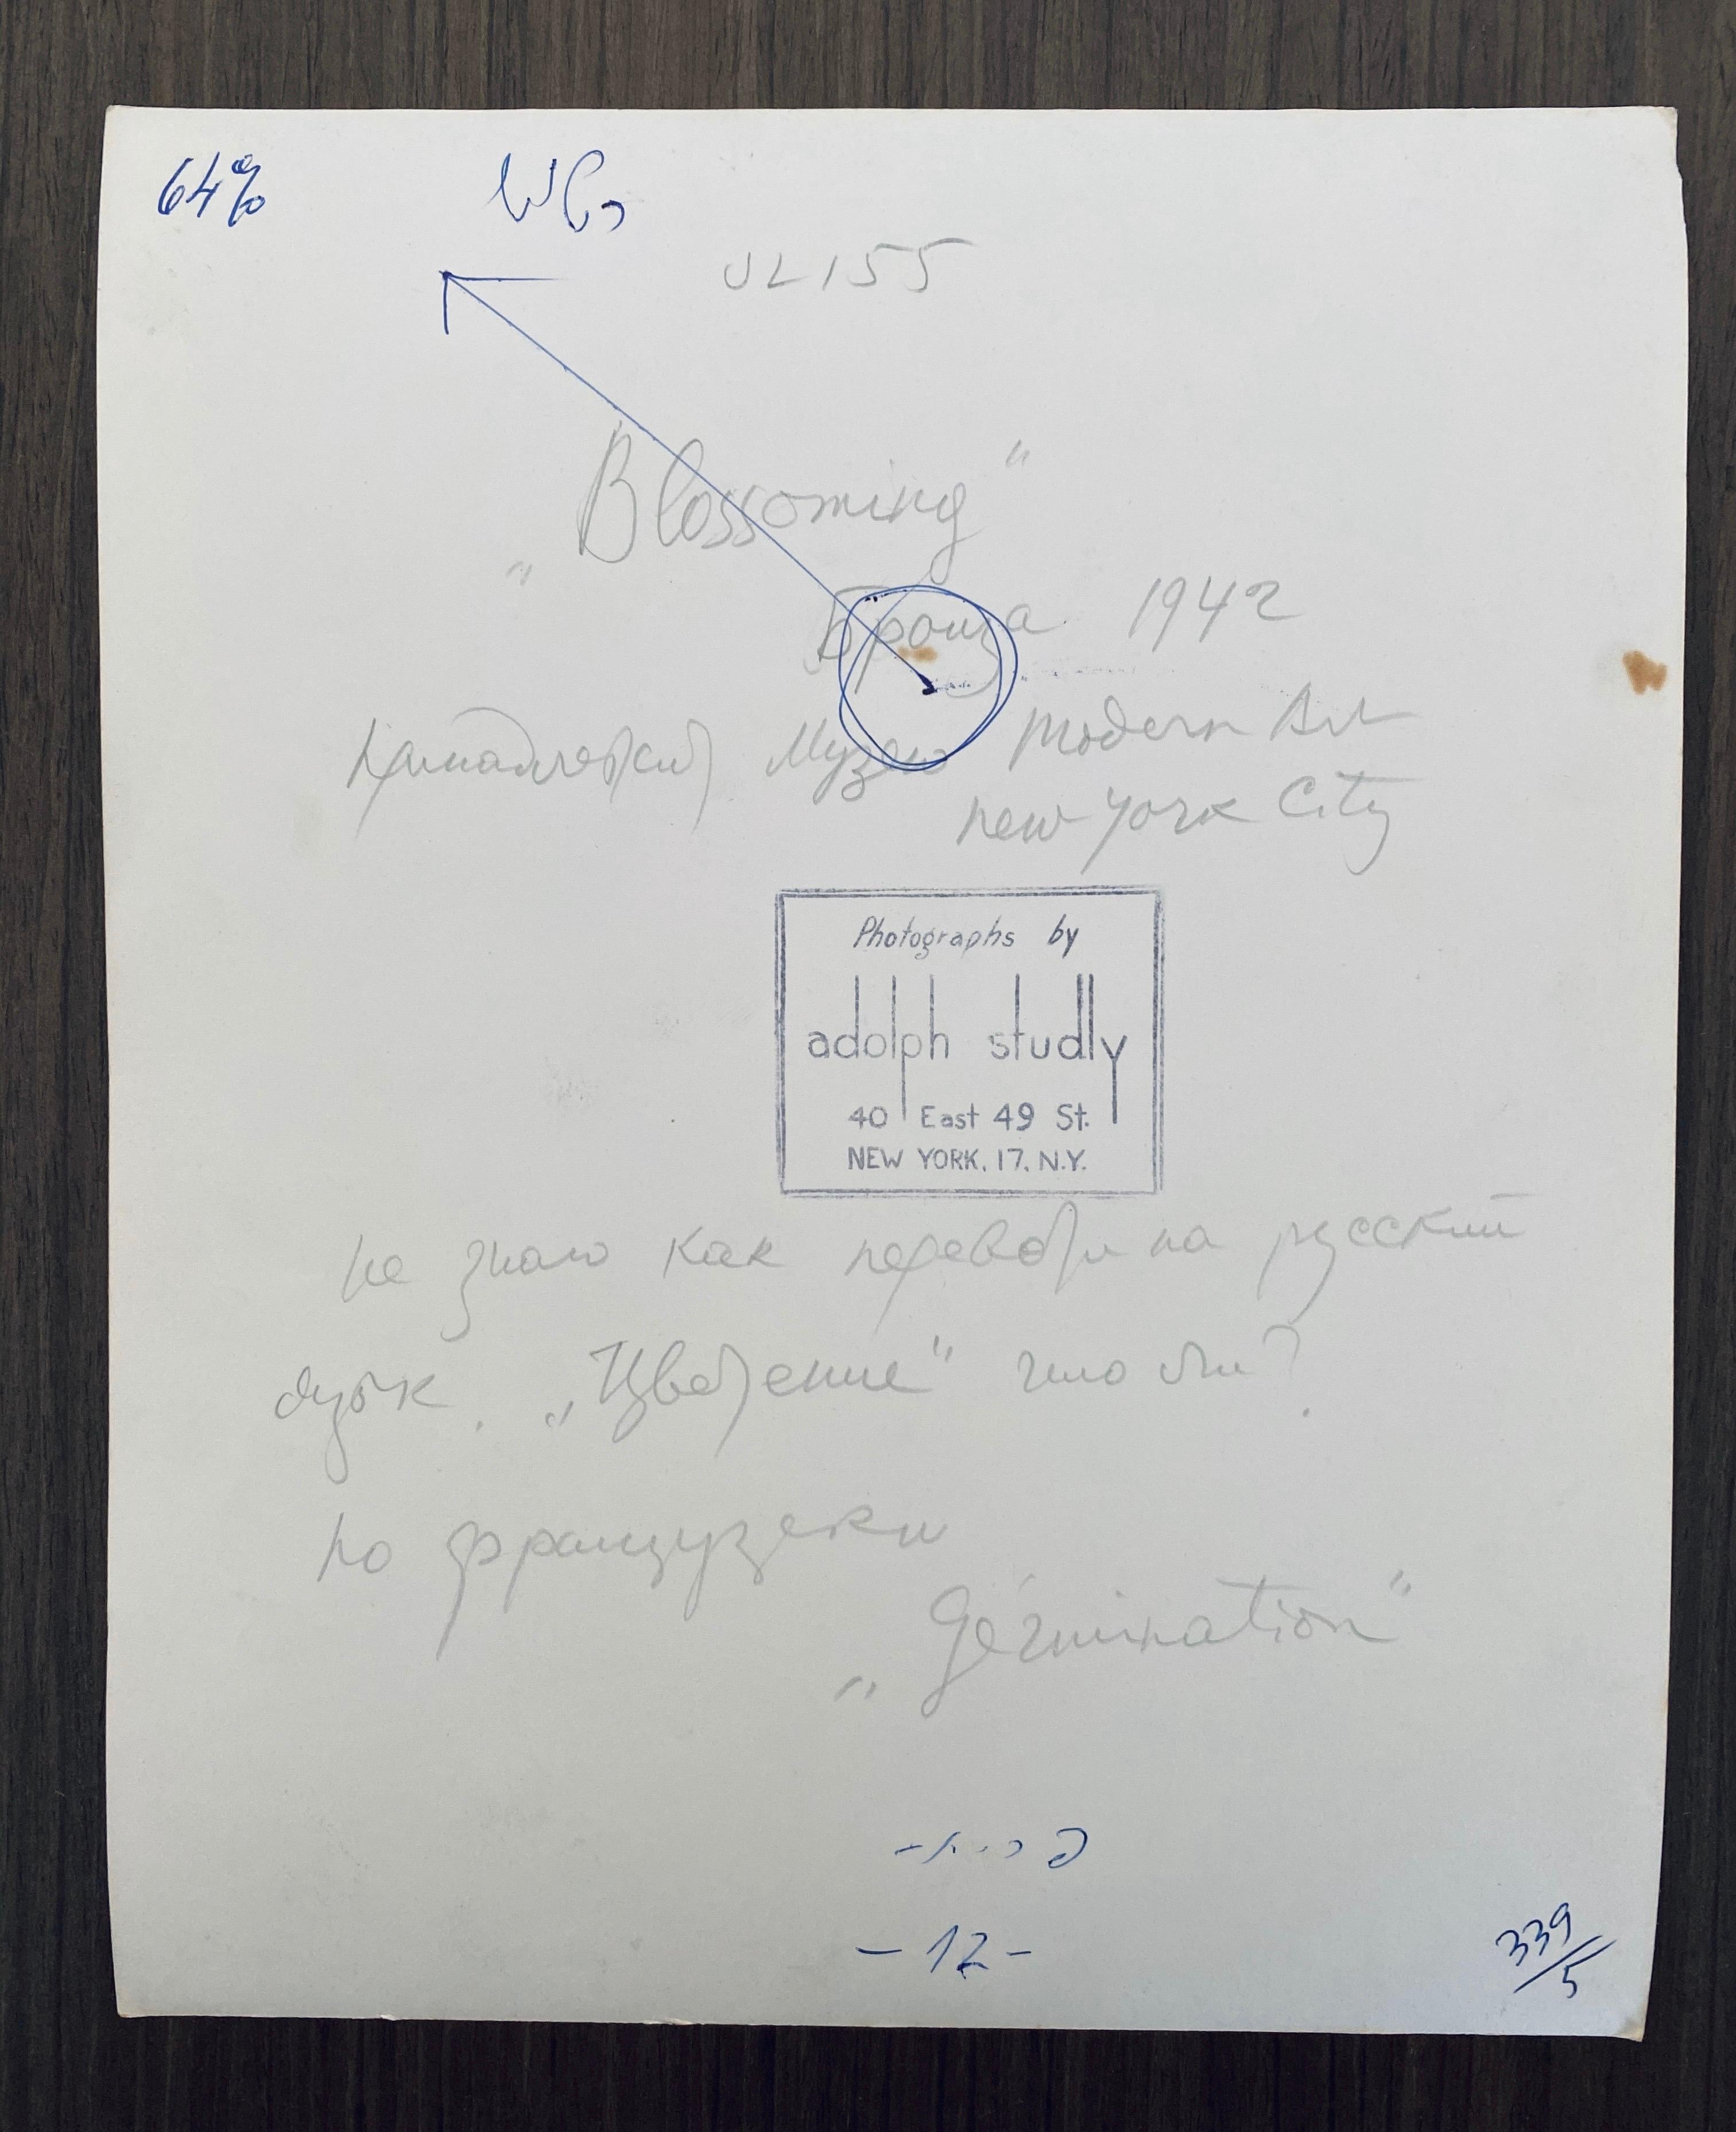 64%
JL155
„Blossoming“
Бронза 1942
принадлежит Музею Modern Art
New York City
Photographs by
adolph studly
40 East 49 St.
NEW YORK. 17. N.Y.
не знаю как перевести на русский
язык. „Цветение“ что ли?
по французски
„Germination“
- 12 -
339/5